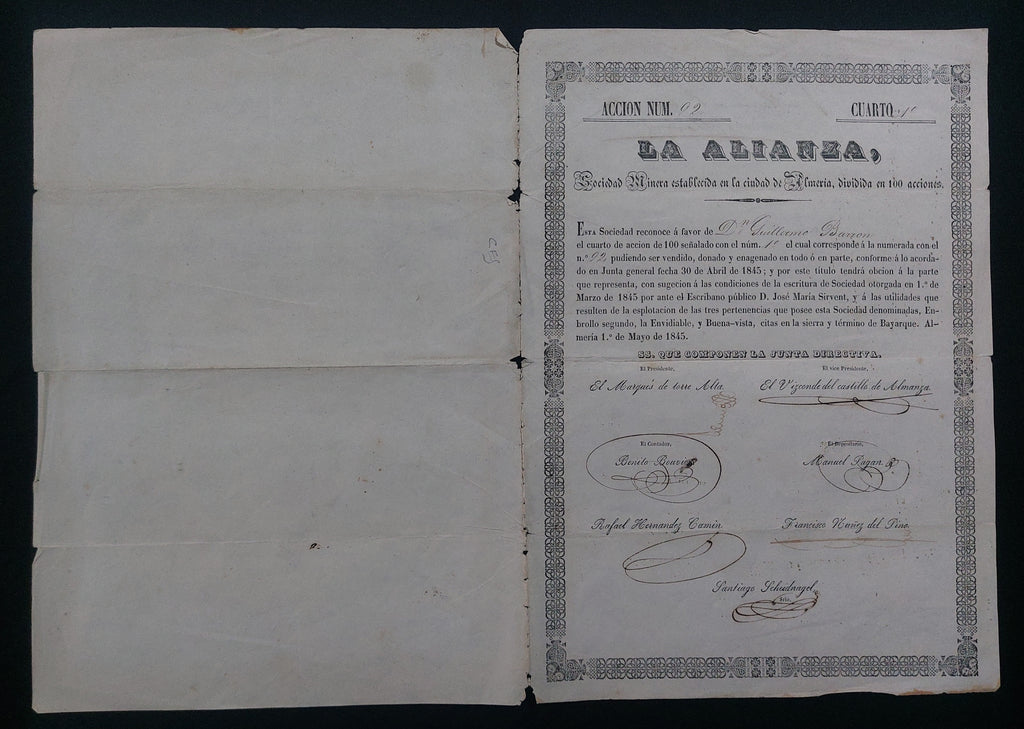 ACCION NUM. 92 CUARTO 1º
LA ALIANZA,
Sociedad Minera establecida en la ciudad de Almeria, dividida en 100 acciones.
ESTA Sociedad reconoce á favor de Dn. Guillermo Barron
el cuarto de accion de 100 señalado con el núm. 1º el cual corresponde á la numerada con el
n.º 92, pudiendo ser vendido, donado y enagenado en todo ó en parte, conforme á lo acorda-
do en Junta general fecha 30 de Abril de 1845; y por este título tendrá obcion á la parte
que representa, con sugecion á las condiciones de la escritura de Sociedad otorgada en 1.º de
Marzo de 1845 por ante el Escribano público D. José Maria Sirvent, y á las utilidades que
resulten de la esplotacion de las tres pertenencias que posee esta Sociedad denominadas, En-
brollo segundo, la Envidiable, y Buena-vista, citas en la sierra y término de Bayarque. Al-
meria 1.º de Mayo de 1845.
SS. QUE COMPONEN LA JUNTA DIRECTIVA.
El Presidente, El vice Presidente,
El Marqués de torre Alta El Vizconde del castillo de Almanza
El Contador, El Depositario,
Benito Manuel Pagan
Rafael Hernandez Camin Francisco Nuñez del Pino
Santiago Scheidnagel
Srio.
CES